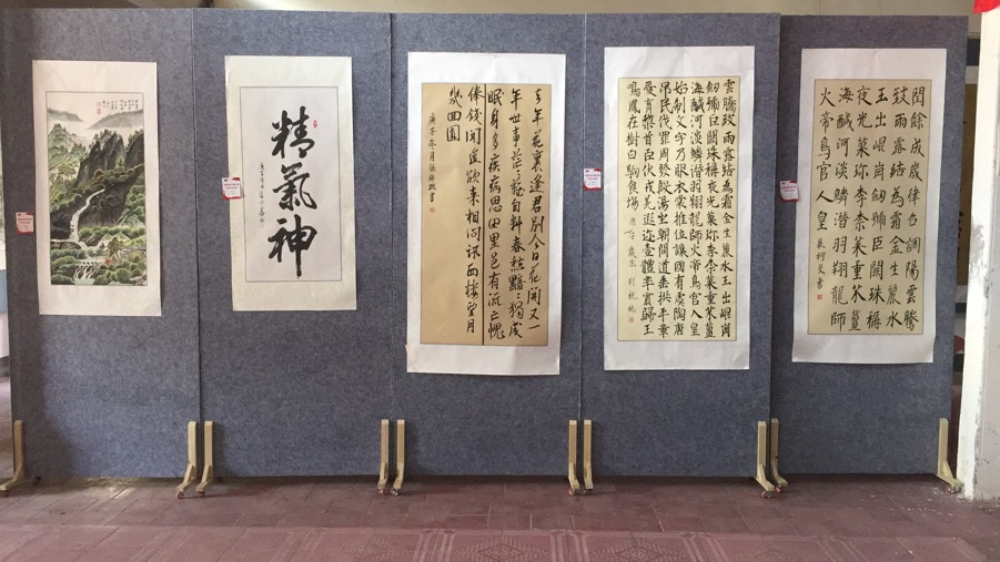 精氣神
去年花裏逢君別今日花開又一
年世事茫〻難自料春愁黯〻獨成
眠身多疾病思田里邑有流亡愧
俸錢聞道欲來相問訊西樓望月
幾回圓
庚子冬月張書
雲騰致雨露結為霜金生麗水玉出崐岡
劍號巨闕珠稱夜光菓珍李柰菜重芥薑
海鹹河淡鱗潛羽翔龍師火帝鳥官人皇
始制文字乃服衣裳推位讓國有虞陶唐
弔民伐罪周發殷湯坐朝問道垂拱平章
愛育黎首臣伏戎羌遐迩壹體率賓歸王
鳴鳳在樹白駒食場 庚子歲末 劉
閏餘成歲律召調陽雲騰
致雨露結為霜金生麗水
玉出崐崗劍號巨闕珠稱
夜光菓珍李柰菜重芥薑
海鹹河淡鱗潛羽翔龍師
火帝鳥官人皇 書